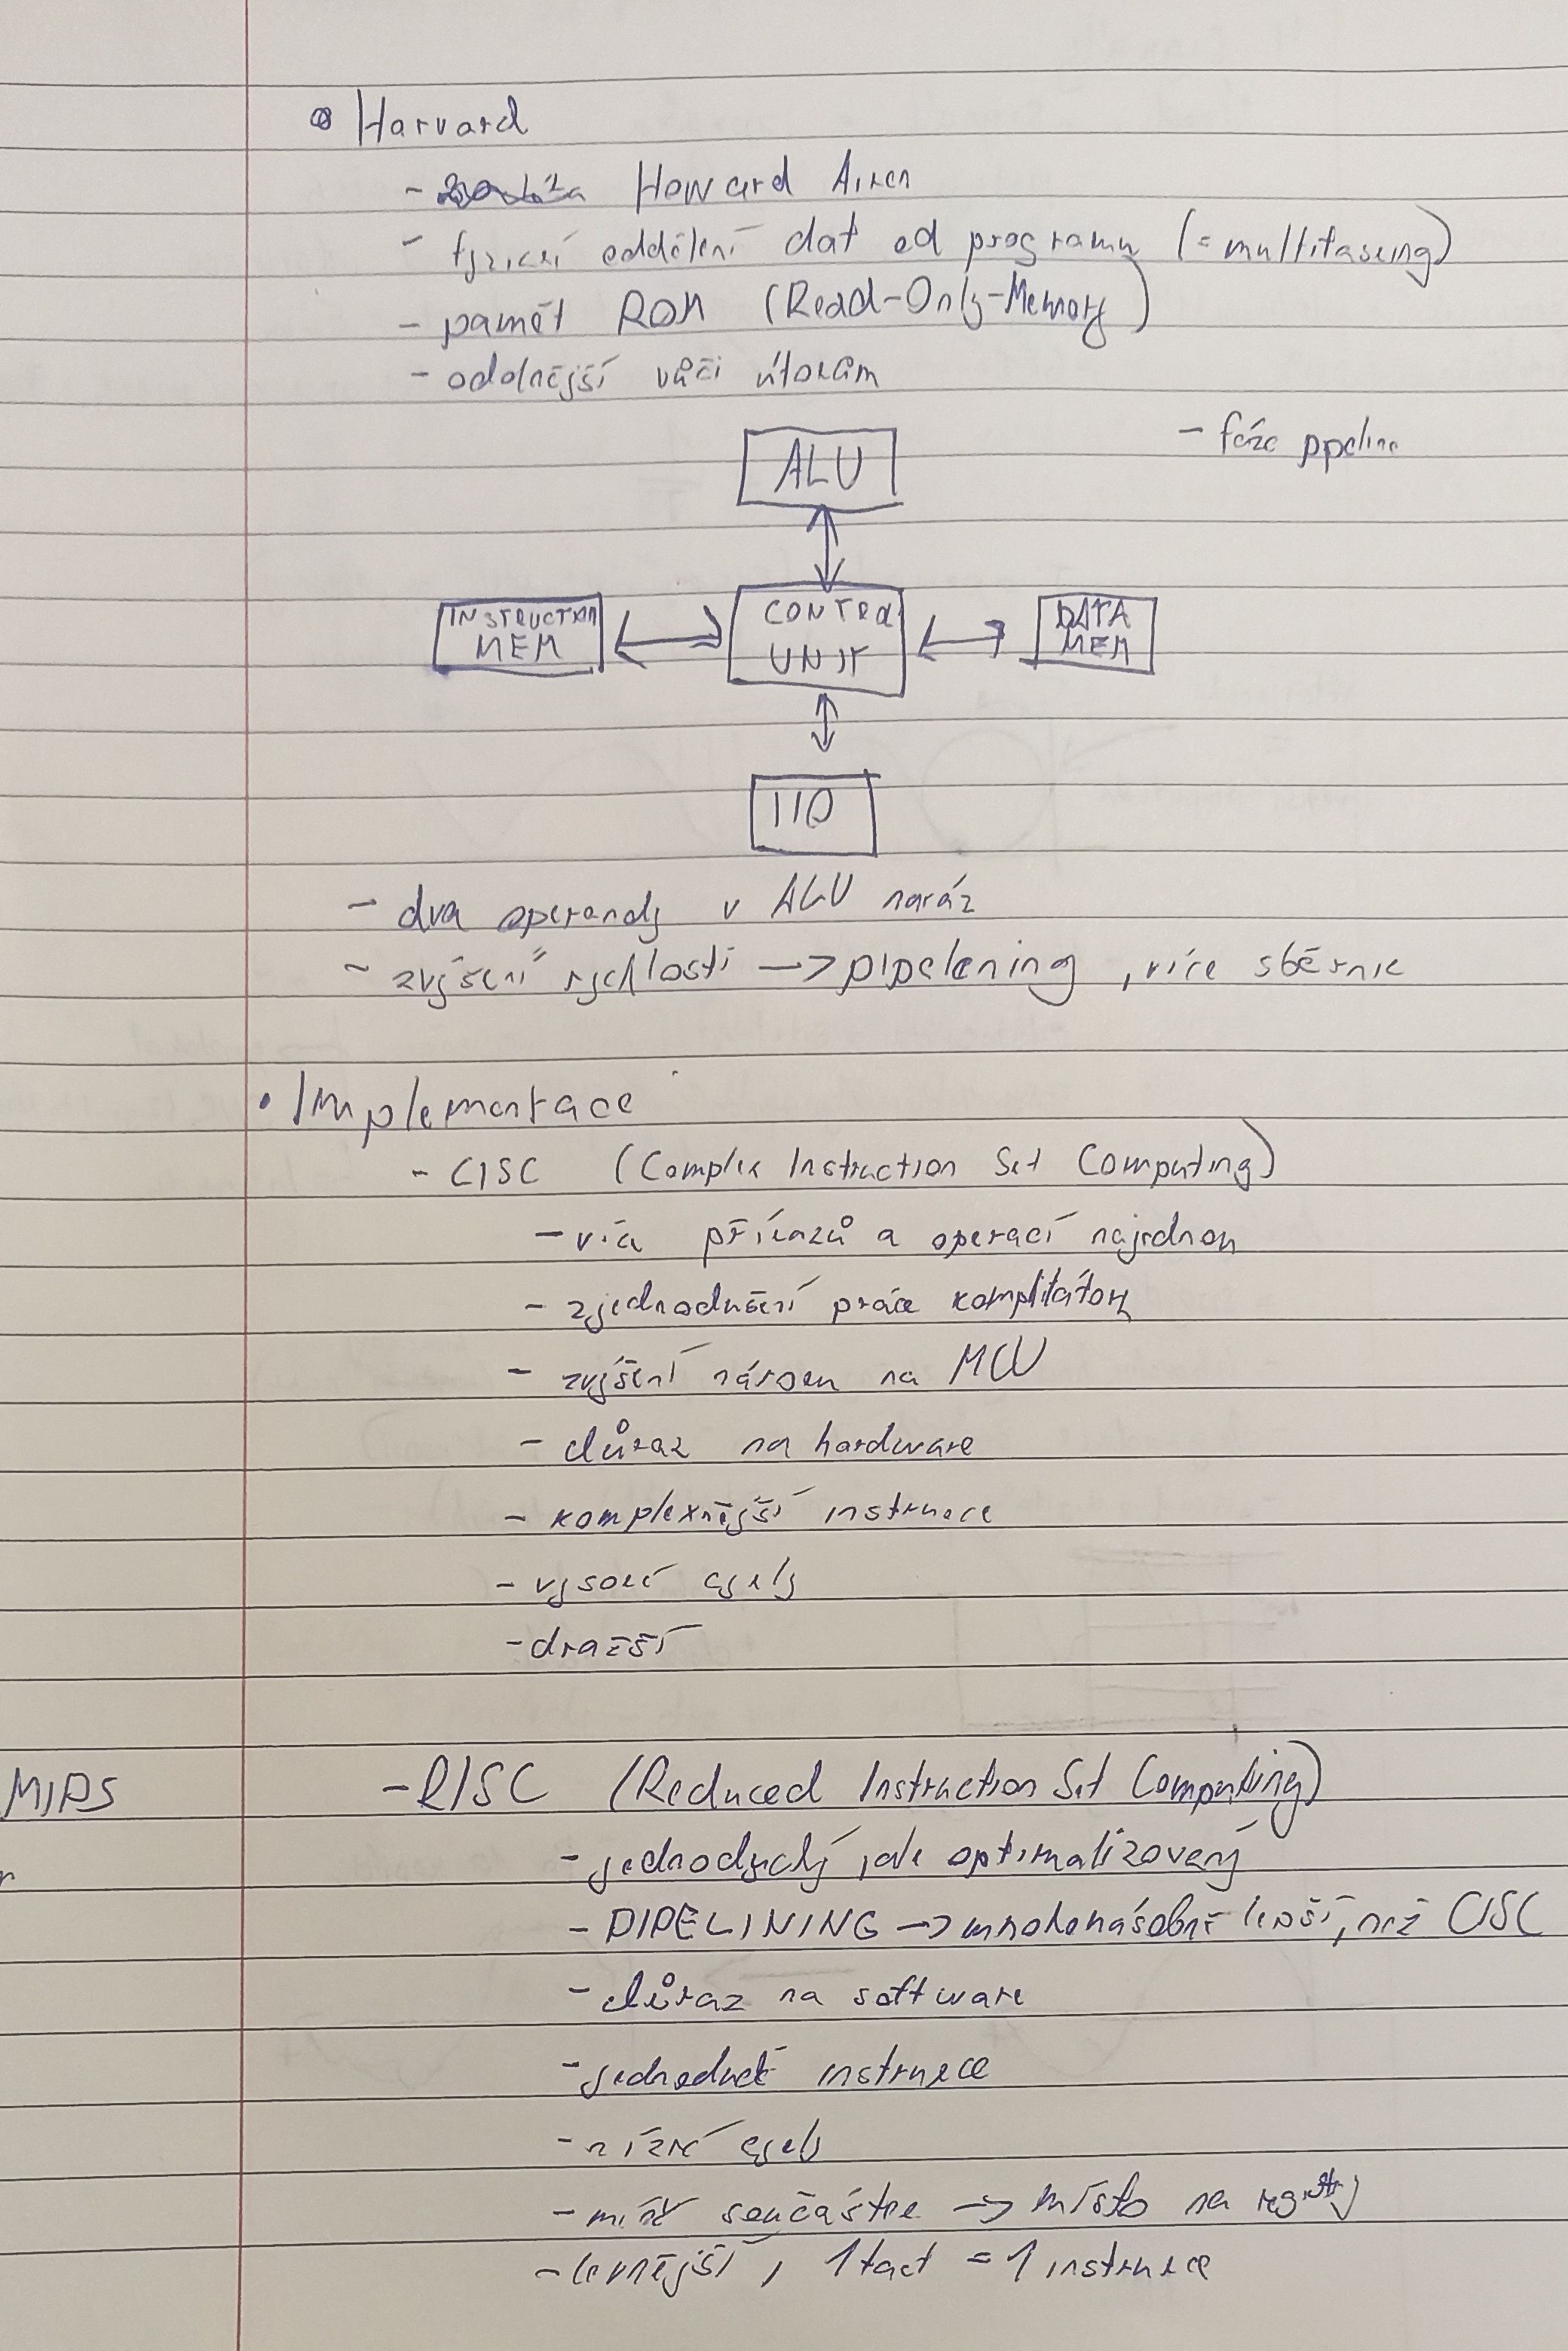 Harvard
- Howard Aiken
- fyzické oddělení dat od programu (= multitasking)
- paměť ROM (Read-Only-Memory)
- odolnější vůči útokům
- fáze pipeline
ALU
INSTRUCTION MEM
CONTROL UNIT
DATA MEM
I/O
- dva operandy v ALU naráz
- zvýšení rychlosti -> pipelening, více sběrnic
• Implementace
- CISC (Complex Instruction Set Computing)
- více příkazů a operací najednou
- zjednodušení práce kompilátoru
- zvýšení nároku na MCU
- důraz na hardware
- komplexnější instrukce
- vysoké cykly
- dražší
MIPS
- RISC (Reduced Instruction Set Computing)
- jednoduchý, ale optimalizovaný
- PIPELINING -> mnohonásobně lepší, než CISC
- důraz na software
- jednoduché instrukce
- nízké cykly
- míň součástek -> místo na registry
- levnější, 1 takt = 1 instrukce